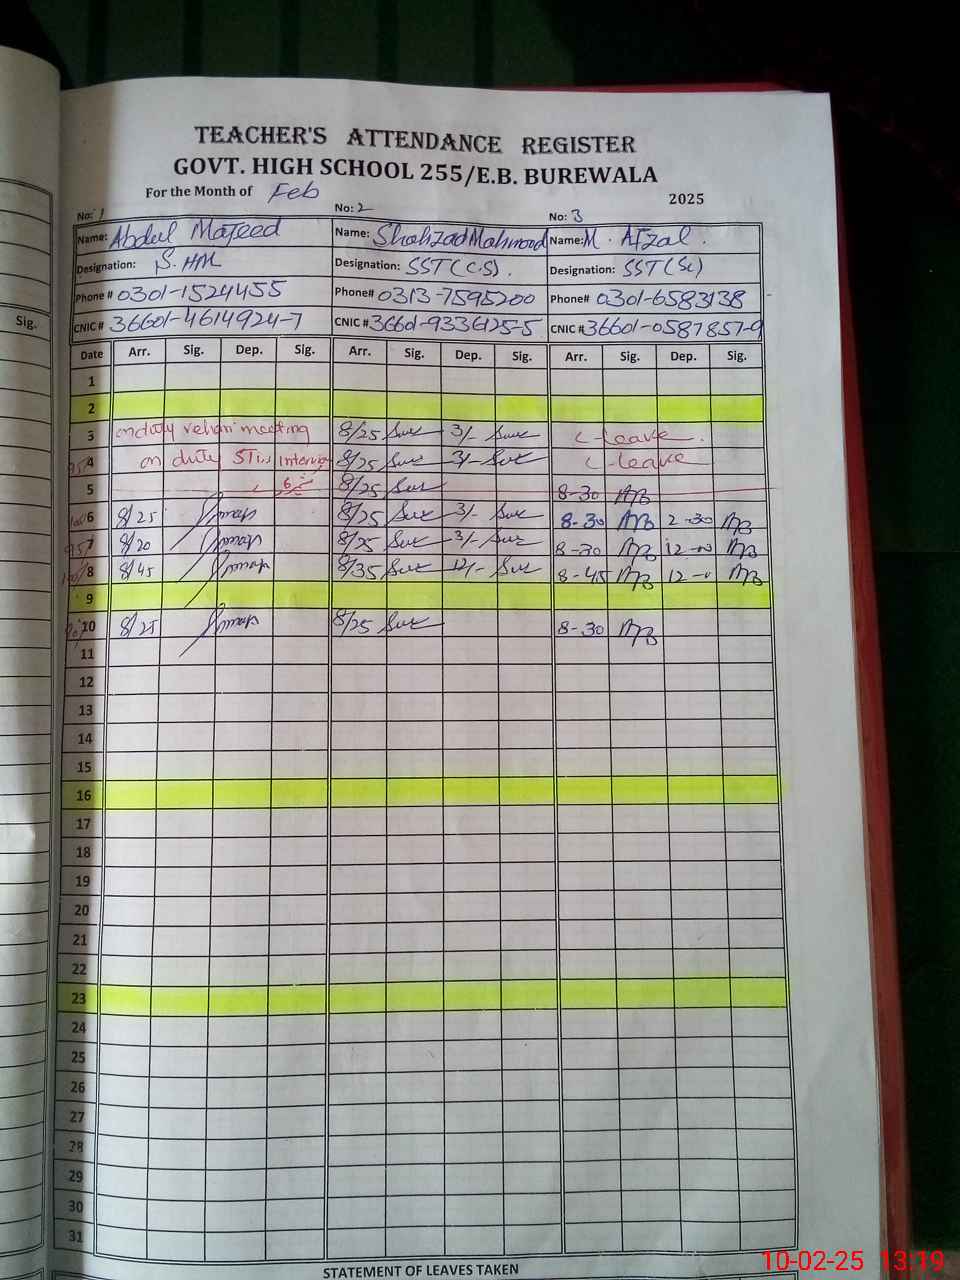 TEACHER'S ATTENDANCE REGISTER
GOVT. HIGH SCHOOL 255/E.B. BUREWALA
For the Month of Feb 2025
No: 1 No: 2 No: 3
Name: Abdul Majeed Name: Shahzad Mahmood Name: M. Afzal.
Designation: S. HM Designation: SST (C.S). Designation: SST (Sc)
Phone# 0301-1524455 Phone# 0313-7595200 Phone# 0301-6583138
CNIC# 36601-4614924-7 CNIC# 36601-9336125-5 CNIC# 36601-0587857-9
Sig.
Date Arr. Sig. Dep. Sig. Arr. Sig. Dep. Sig. Arr. Sig. Dep. Sig.
1
2
3 on duty meeting 8/25 3/- C-leave.
4 on duty STIs 8/25 3/- C-leave
5 8/25 8-30
6 8/25 8/25 3/- 8-30 2-30
7 8/20 8/25 3/- 8-30 12-
8 8/45 8/35 12/- 8-45 12-
9
10 8/25 8/25 8-30
11
12
13
14
15
16
17
18
19
20
21
22
23
24
25
26
27
28
29
30
31
STATEMENT OF LEAVES TAKEN
10-02-25 13:19